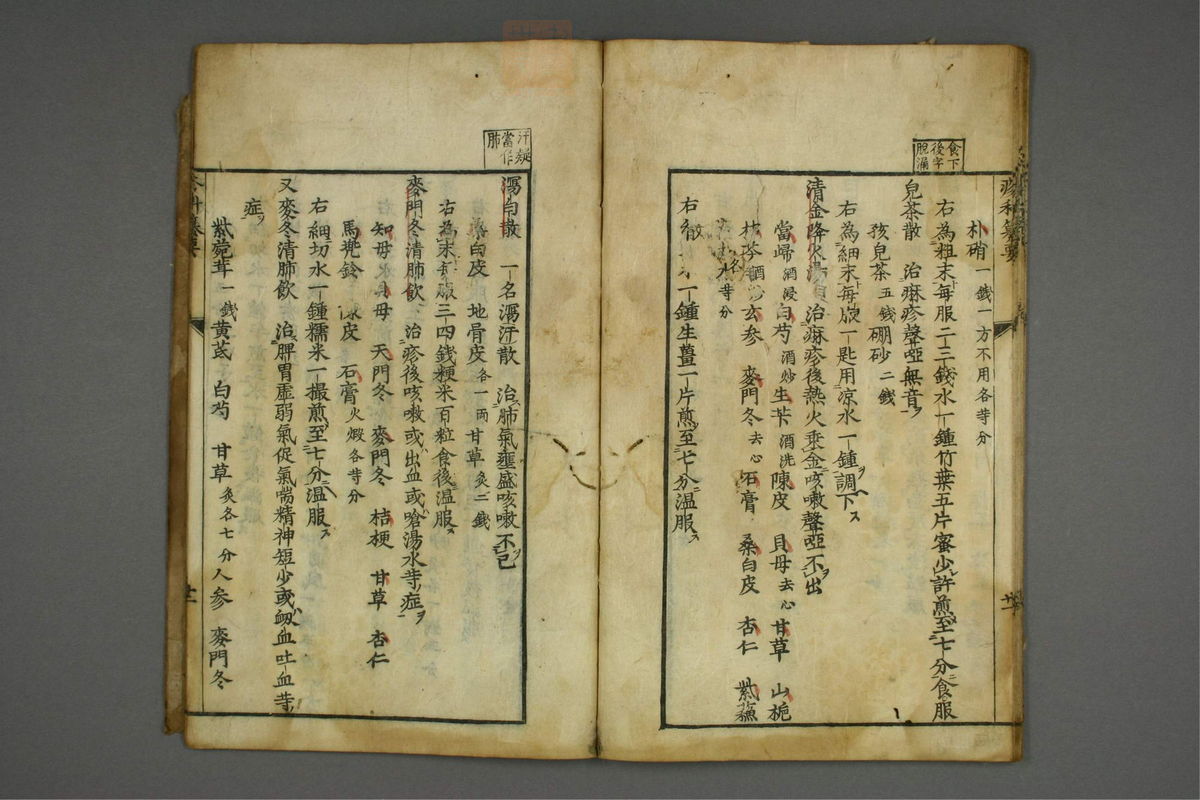 食下
後字
脫漏
朴硝一錢一方不用各等分
右為粗末每服二三錢水一鍾竹葉五片蜜少許煎至七分食服
兒茶散 治痳疹聲啞無音
孩兒茶五錢硼砂二錢
右為細末每服一匙用凉水一鍾調下
清金降火湯 治痳疹後熱火乘金咳嗽聲啞不出
當歸酒浸白芍酒炒生苄酒洗陳皮 貝母去心甘草 山梔
芩酒炒玄参 麥門冬去心石膏 桑白皮 杏仁 紫蘓
等分
右 水一鍾生薑一片煎至七分温服
汗疑
當作
肺
瀉白散 一名瀉汗散 治肺氣壅盛咳嗽不已
桑白皮 地骨皮各一両甘草炙二錢
右為末每服三四錢粳米百粒食後温服
麥門冬清肺飲 治疹後咳嗽或出血或嗆湯水等症
知母 貝母 天門冬 麥門冬 桔梗 甘草 杏仁
馬兠鈴 陳皮 石膏火煅各等分
右細切水一鍾糯米一撮煎至七分温服
又麥冬清肺飲 治脾胃虛弱氣促氣喘精神短少或衂血吐血等
症
紫菀茸一錢黄芪 白芍 甘草炙各七分人参 麥門冬